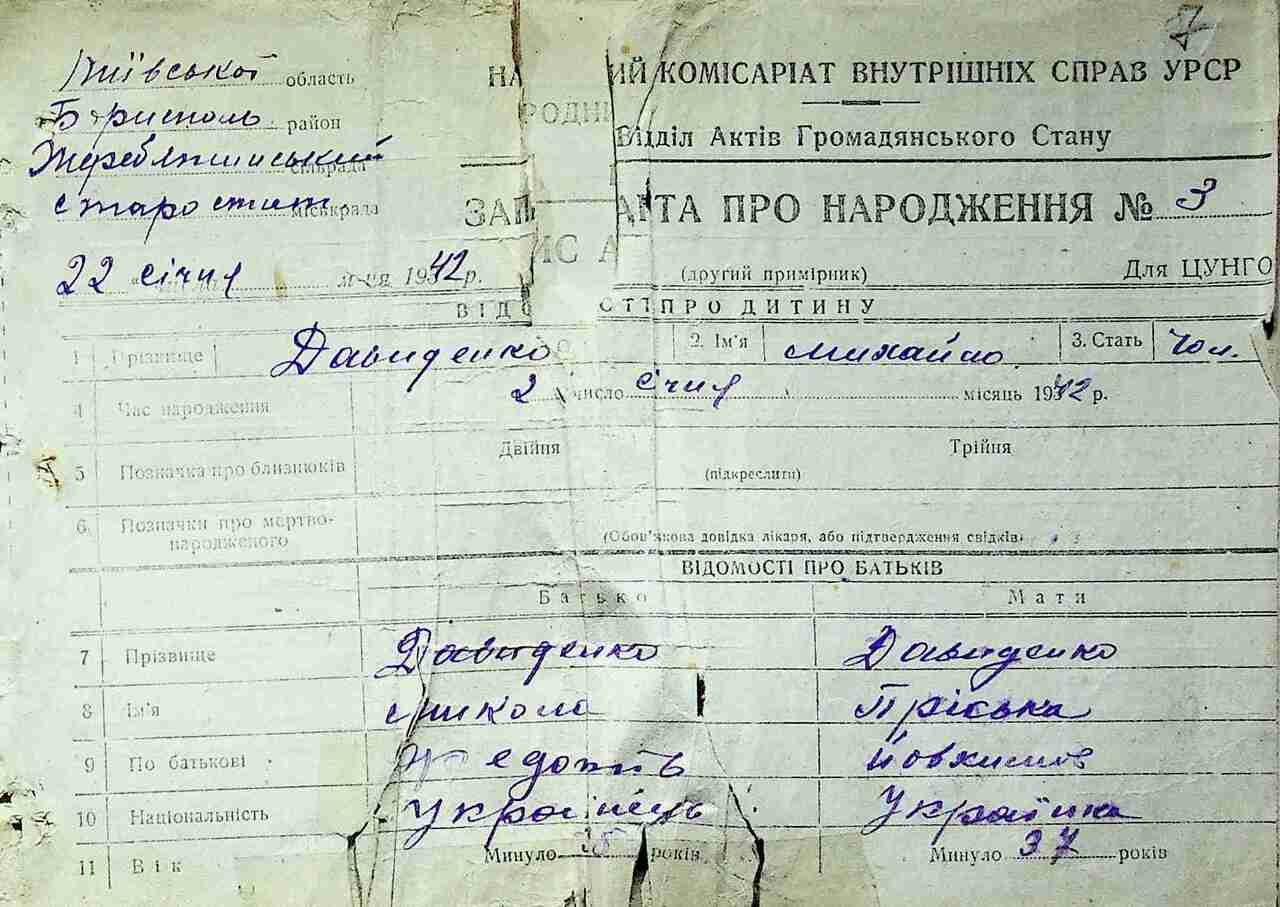 7
Київської область
НА ИЙ КОМІСАРІАТ ВНУТРІШНІХ СПРАВ УРСР
РОДНІ
Бориспол район
Відділ Актів Громадянського Стану
сільрада
старостат міськрада
ЗАП АКТА ПРО НАРОДЖЕННЯ № 3
ИС А
22 січня м-ця 1942 р.
(другий примірник)
Для ЦУНГО
ВІДО СТІ ПРО ДИТИНУ
1 Прізвище Давиденко 2. Ім'я Михайло 3. Стать Чол.
4 Час народження 2 число січня місяць 1942 р.
5 Позначка про близнюків Двійня (підкреслити) Трійня
6. Позначки про мертво-
народженого (Обов'язкова довідка лікаря, або підтвердження свідків)
ВІДОМОСТІ ПРО БАТЬКІВ
Батько Мати
7 Прізвище Давиденко Давиденко
8 Ім'я Микола Пріська
9 По батькові Федотів Йовхимов
10 Національність Українець Українка
11 Вік Минуло років Минуло 37 років